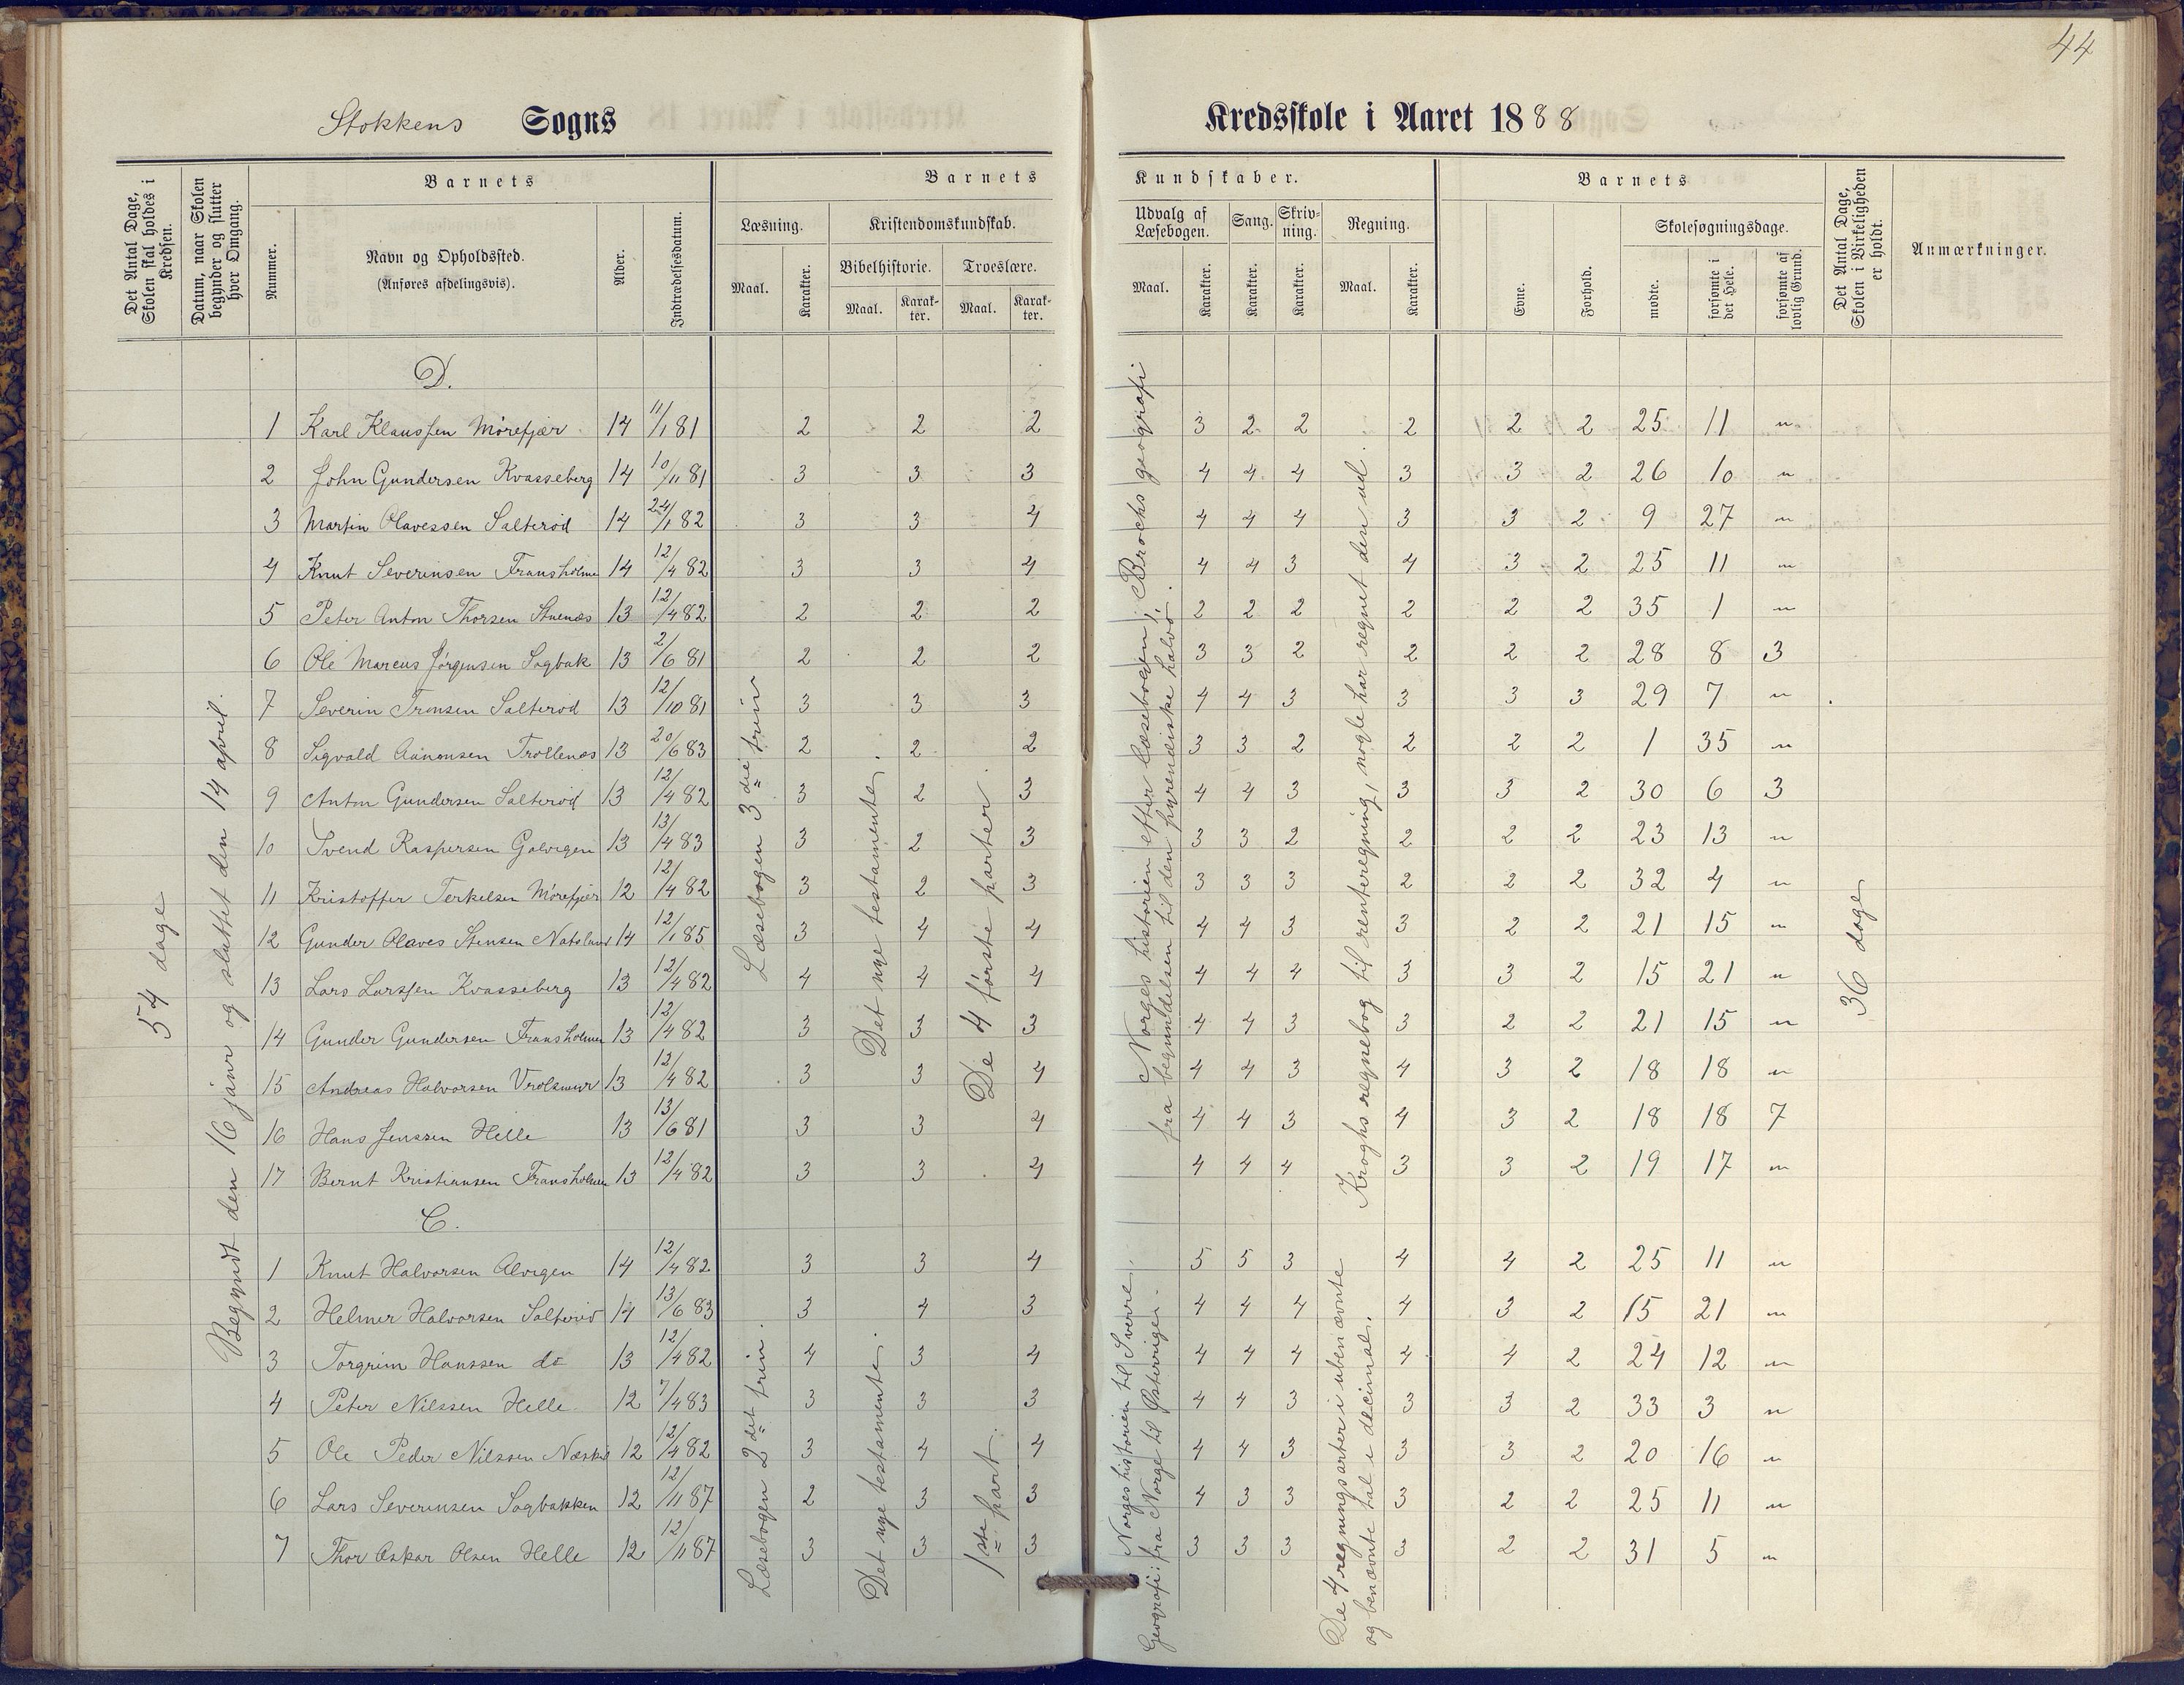 44
Stokkens Sogns
Kredsskole i Aaret 1888
Det Antal Dage, Skolen skal holdes i Kredsen.
Datum, naar Skolen begynder og slutter hver Omgang.
Barnets
Nummer.
Navn og Opholdssted.
(Anføres afdelingsvis).
Alder.
Indtrædelsesdatum.
Barnets
Læsning.
Maal.
Karakter.
Kristendomskundskab.
Bibelhistorie.
Maal.
Karak-ter.
Troeslære.
Maal.
Karak-ter.
Kundskaber.
Udvalg af Læsebogen.
Maal.
Karakter.
Sang.
Karakter.
Skriv-ning.
Karakter.
Regning.
Maal.
Karakter.
Barnets
Evne.
Forhold.
Skolesøgningsdage.
mødte.
forsømte i det Hele.
forsømte af lovlig Grund.
Det Antal Dage, Skolen i Virkeligheden er holdt.
Anmærkninger.
54 dage
Begyndt den 16 januar og sluttet den 14 april.
D.
1 Karl Klaussen Mørefjær 14 11/1 81 2 2 2 3 2 2 2 2 2 25 11 "
2 John Gundersen Kvasseberg 14 10/11 81 3 3 3 4 4 4 3 3 2 26 10 "
3 Martin Olavessen Salterød 14 24/1 82 3 3 4 4 4 4 3 3 2 9 27 "
4 Knut Severinsen Fransholme 14 12/4 82 3 3 4 4 4 3 4 3 2 25 11 "
5 Peter Anton Thorsen Stuenæs 13 12/4 82 2 2 2 2 2 2 2 2 2 35 1 "
6 Ole Marcus Jørgensen Sagbak 13 2/6 81 2 2 2 3 3 2 2 2 2 28 8 3
7 Severin Tronsen Salterød 13 12/10 81 3 3 3 4 4 3 3 3 3 29 7 "
8 Sigvald Aanonsen Trollenæs 13 20/6 83 2 2 2 3 3 2 2 2 2 1 35 "
9 Anton Gundersen Salterød 13 12/4 82 3 2 3 4 4 3 3 3 2 30 6 3
10 Svend Kaspersen Galvigen 13 13/4 83 3 2 3 3 3 2 2 2 2 23 13 "
11 Kristoffer Terkelsen Mørefjær 12 12/4 82 3 2 3 3 3 3 2 2 2 32 4 "
12 Gunder Olaves Stensen Natsland 14 12/1 85 3 4 4 4 4 3 3 2 2 21 15 "
13 Lars Larssen Kvasseberg 13 12/4 82 4 4 4 4 4 4 3 3 2 15 21 "
14 Gunder Gundersen Fransholmen 13 12/4 82 3 3 3 4 4 3 3 2 2 21 15 "
15 Andreas Halvorsen 13 12/4 82 3 3 4 4 4 3 4 3 2 18 18 "
16 Hans Jenssen Helle 13 13/6 81 3 3 4 4 4 3 4 3 2 18 18 7
17 Bernt Kristiansen Fransholmen 13 12/4 82 3 3 4 4 4 4 3 3 2 19 17 "
Læsebogen 3die trin
Det nye testamente.
De 4 første parter.
Norges historien efter læsebogen; Brochs geografi
fra begyndelsen til den pyrenæiske halvø.
Kroghs regnebog til renteregning, nogle har regnet den ud.
36 dage
C.
1 Knut Halvorsen Alvigen 14 12/4 82 3 3 4 5 5 3 4 4 2 25 11 "
2 Helmer Halvorsen Salterød 14 13/6 83 3 4 3 4 4 4 4 3 2 15 21 "
3 Torgrim Hanssen do 13 12/4 82 4 3 4 4 4 4 4 4 2 24 12 "
4 Peter Nilssen Helle 12 7/4 83 3 3 3 4 4 3 3 3 2 33 3 "
5 Ole Peder Nilssen Næskil 12 12/4 82 3 4 4 4 4 3 3 3 2 20 16 "
6 Lars Severinsen Sagbakken 12 12/11 87 2 3 3 4 3 3 3 2 2 25 11 "
7 Thor Oskar Olsen Helle 12 12/11 87 3 3 3 3 3 3 3 2 2 31 5 "
Læsebogen 2det trin.
Det nye testamente.
1ste part.
Norges historien til Sverre.
Geografi: fra Norge til Østerrige.
De 4 regningsarter i ubenævnte
og benævnte tal i decimal.